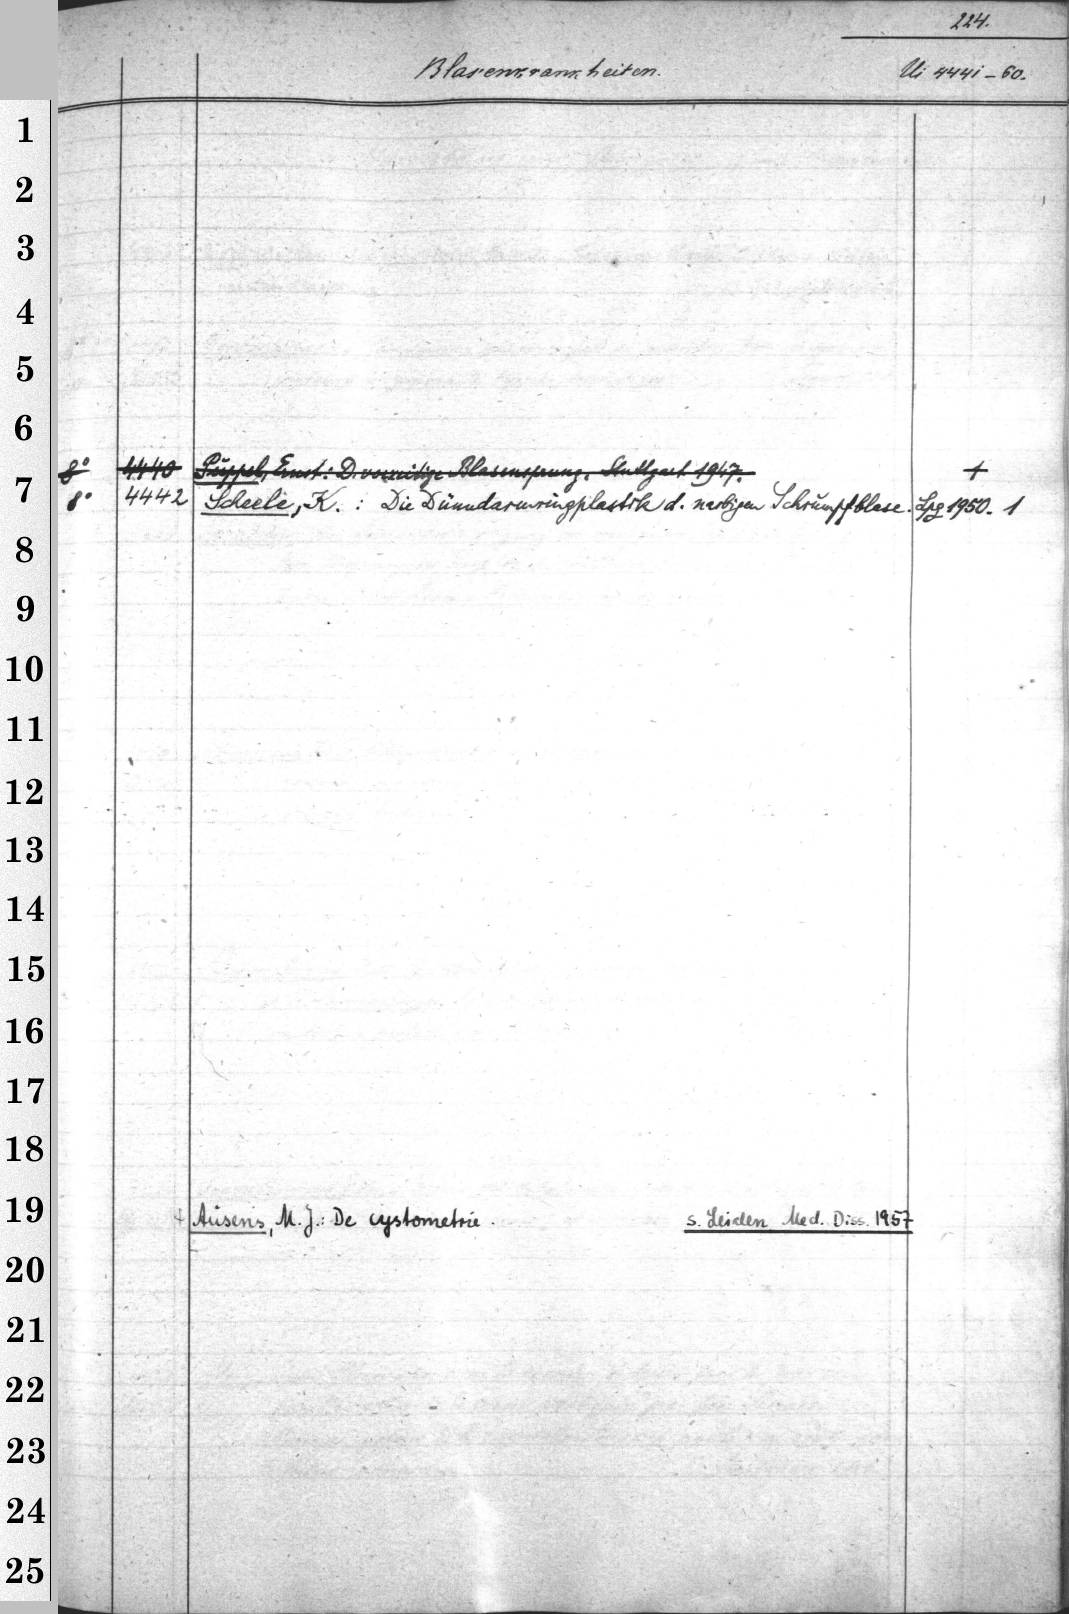 224.
Blasenkrankheiten. Ui 4441-60.
1
2
3
4
5
6
8° 4440 Püppel, Ernst: D. vorzeitige Blasensprung. Stuttgart 1947. 1
7
8° 4442 Scheele, K.: Die Dünndarmringplastik d. narbigen Schrumpfblase. Lpg 1950. 1
8
9
10
11
12
13
14
15
16
17
18
19
+ Ausens, M. J.: De cystometrie. s. Leiden Med. Diss. 1957
20
21
22
23
24
25